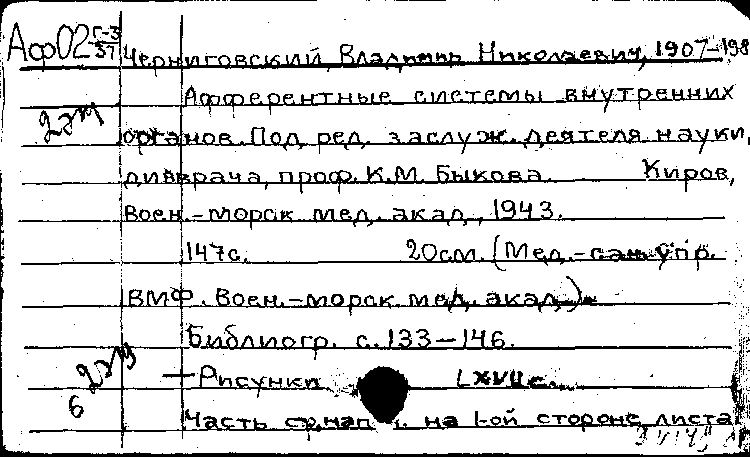 Аф02 Г-3/37
Черниговский, Владимир Николаевич, 1907-198
Афферентные системы внутренних
органов. Под ред. заслуж. деятеля науки,
дивврача, проф. К.М. Быкова. Киров,
Воен.-морск. мед. акад., 1943.
147с. 20см. (Мед.-сан. упр.
ВМФ. Воен.-морск. мед. акад.)
Библиогр. с. 133-146.
— Рисунки. LXVII с.
6
Часть на 1-ой стороне листа